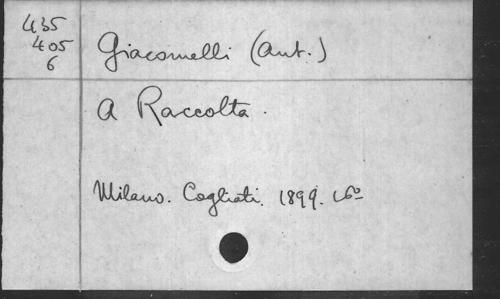 435
405
6
Giacomelli (Ant.)
A Raccolta.
Milano. Cogliati. 1899. 16º